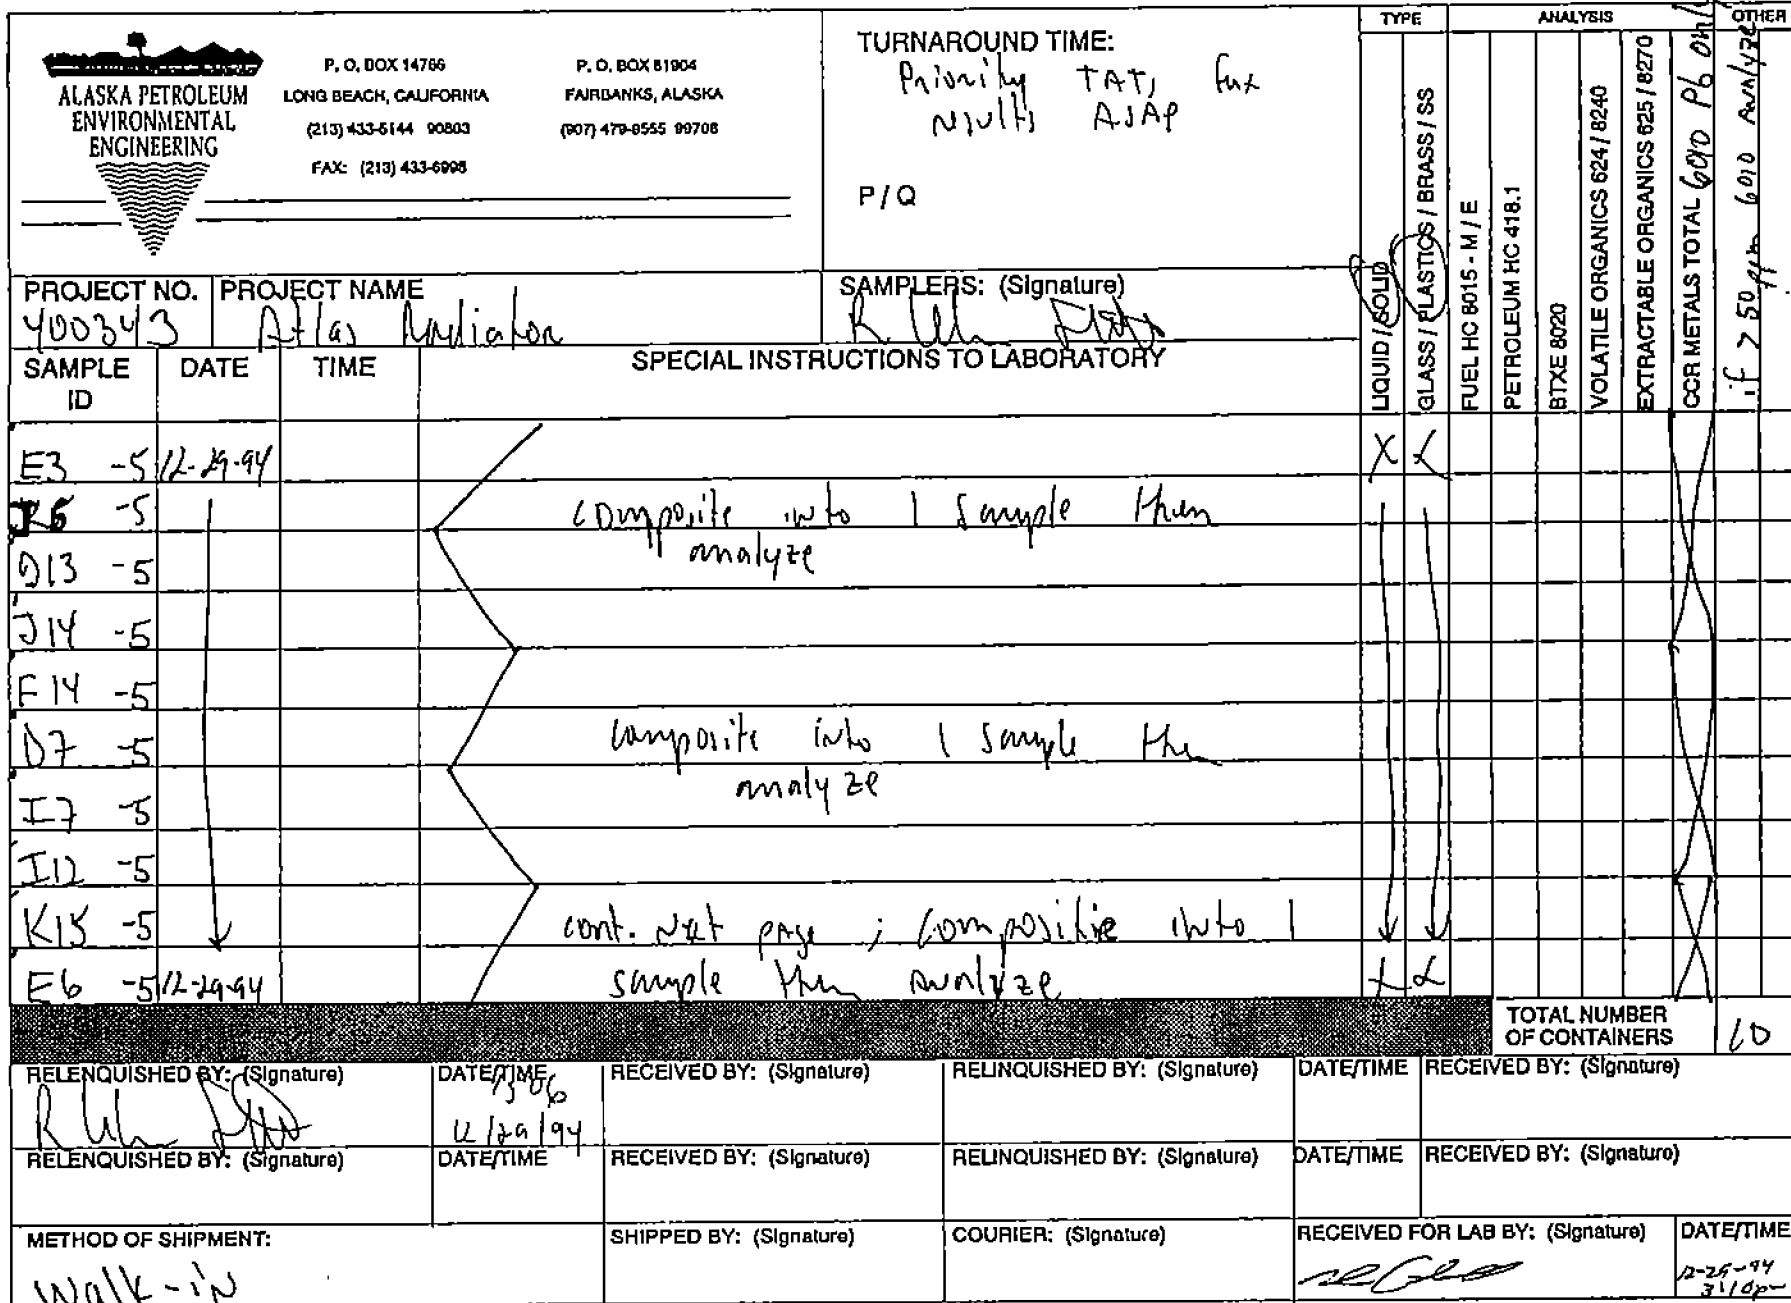 ALASKA PETROLEUM
ENVIRONMENTAL
ENGINEERING
P. O. BOX 14766
LONG BEACH, CALIFORNIA
(213) 433-5144 90803
FAX: (213) 433-6998
P. O. BOX 81904
FAIRBANKS, ALASKA
(907) 479-8555 99708
TURNAROUND TIME:
Priority TAT, Fax
results ASAP
P / Q
TYPE
ANALYSIS
OTHER
LIQUID / SOLID
GLASS / PLASTICS / BRASS / SS
FUEL HC 8015 - M / E
PETROLEUM HC 418.1
BTXE 8020
VOLATILE ORGANICS 624 / 8240
EXTRACTABLE ORGANICS 625 / 8270
CCR METALS TOTAL 6010 Pb only
if > 50 ppm 6010 analyze
PROJECT NO.
400343
PROJECT NAME
Atlas Radiator
SAMPLERS: (Signature)
SAMPLE
ID
DATE
TIME
SPECIAL INSTRUCTIONS TO LABORATORY
E3 -5 12-29-94 X X
-5 composite into 1 sample then
analyze
D13 -5
J14 -5
F14 -5
D7 -5 composite into 1 sample then
analyze
I7 -5
I12 -5
K15 -5 cont. next page ; compositie into 1
E6 -5 12-29-94 sample then analyze X X
TOTAL NUMBER
OF CONTAINERS
10
RELENQUISHED BY: (Signature)
DATE/TIME
12/29/94
RECEIVED BY: (Signature)
RELINQUISHED BY: (Signature)
DATE/TIME
RECEIVED BY: (Signature)
RELENQUISHED BY: (Signature)
DATE/TIME
RECEIVED BY: (Signature)
RELINQUISHED BY: (Signature)
DATE/TIME
RECEIVED BY: (Signature)
METHOD OF SHIPMENT:
Walk-in
SHIPPED BY: (Signature)
COURIER: (Signature)
RECEIVED FOR LAB BY: (Signature)
DATE/TIME
12-29-94
3:10p